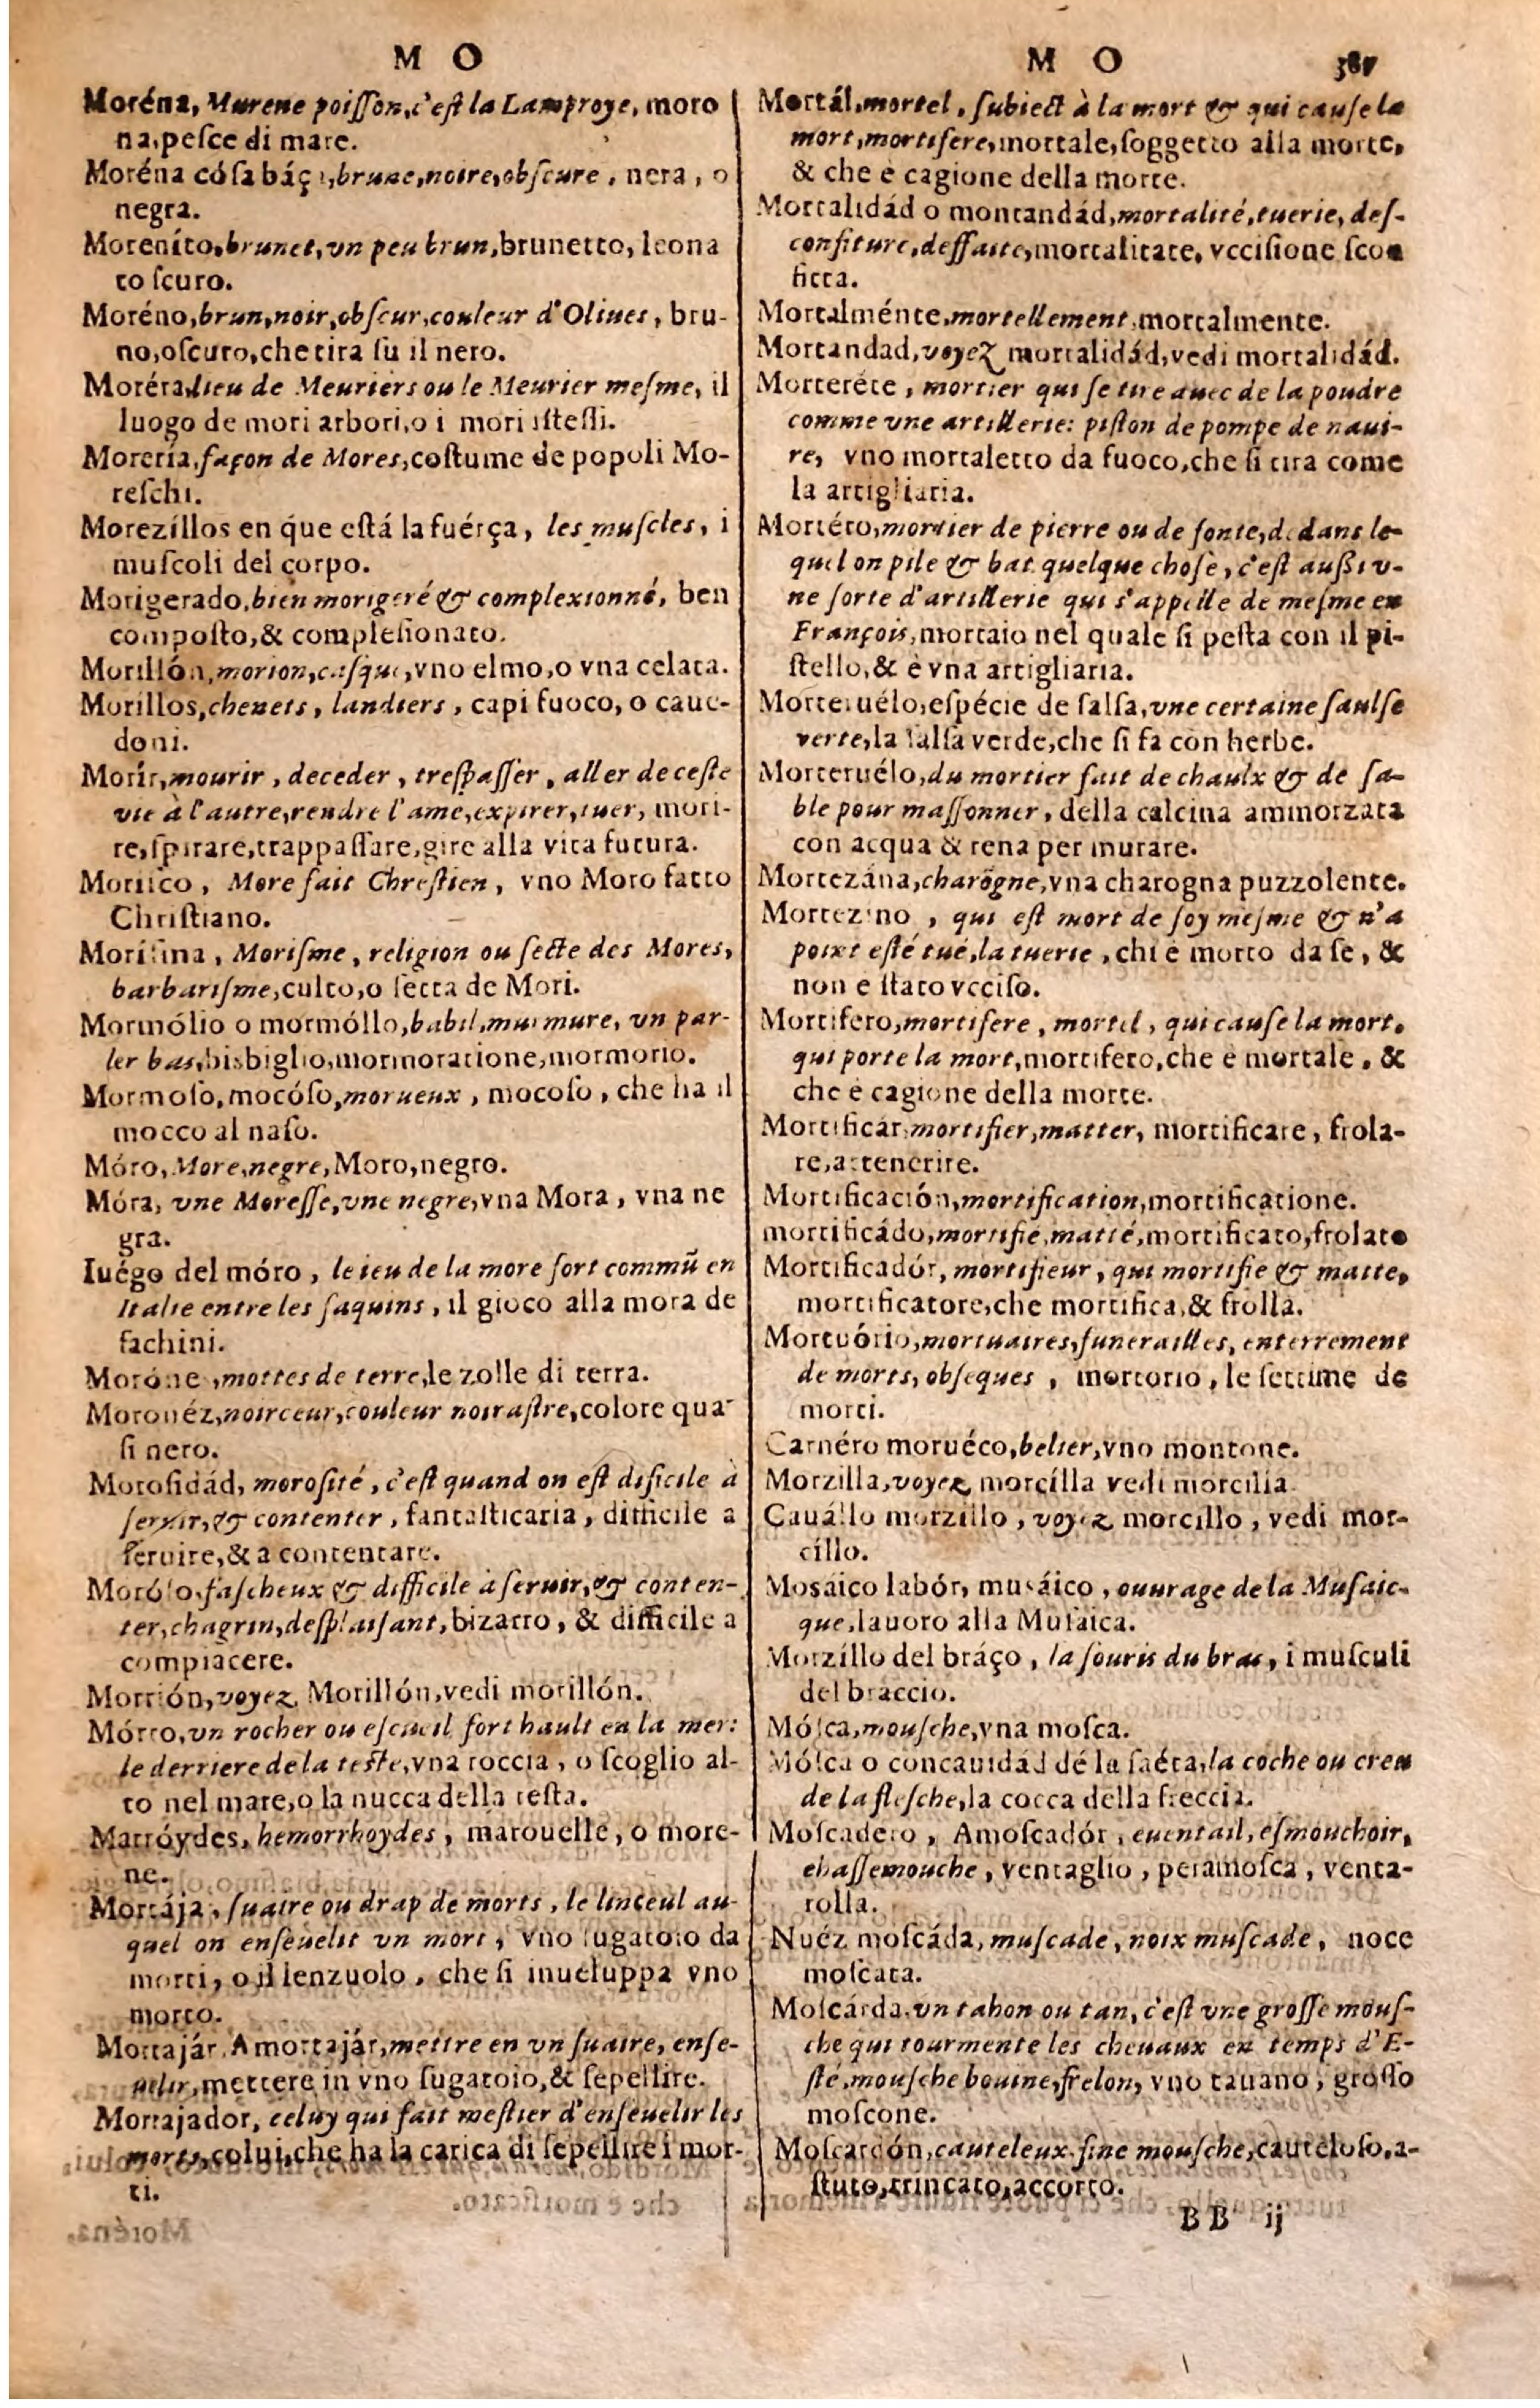 M O
Moréna, Murene poiſſon, c'eſt la Lamproye, moro
na, peſce di mare.
Moréna cóſa báç, brune, noire, obſcure, nera, o
negra.
Moreníto, brunet, vn peu brun, brunetto, leona
to ſcuro.
Moréno, brun, noir, obſcur, couleur d'Oliues, bru-
no, oſcuro, che tira ſu il nero.
Moréra, lieu de Meuriers ou le Meurier meſme, il
luogo de mori arbori, o i mori iſteſſi.
Morería, façon de Mores, coſtume de popoli Mo-
reſchi.
Morezíllos en que eſtá la fuérça, les muſcles, i
muſcoli del corpo.
Morigerado, bien morigeré & complexionné, ben
compoſto, & compleſionato.
Morillón, morion, caſque, vno elmo, o vna celata.
Morillos, chenets, landiers, capi fuoco, o caue-
doni.
Morír, mourir, deceder, treſpaſſer, aller de ceſte
vie à l'autre, rendre l'ame, expirer, tuer, mori-
re, ſpirare, trappaſſare, gire alla vita futura.
Moriſco, More fait Chreſtien, vno Moro fatto
Chriſtiano.
Moríſma, Moriſme, religion ou ſecte des Mores,
barbariſme, culto, o ſetta de Mori.
Mormólio o mormóllo, babil, murmure, vn par-
ler bas, bisbiglio, mormoratione, mormorio.
Mormoſo, mocóſo, morueux, mocoſo, che ha il
mocco al naſo.
Móro, More, negre, Moro, negro.
Móra, vne Moreſſe, vne negre, vna Mora, vna ne
gra.
Iuégo del móro, le ieu de la more fort commũ en
Italie entre les faquins, il gioco alla mora de
fachini.
Moróne, mottes de terre, le zolle di terra.
Moronéz, noirceur, couleur noiraſtre, colore qua-
ſi nero.
Moroſidád, moroſité, c'eſt quand on eſt dificile à
ſeruir, & contenter, fantaſticaria, difficile a
ſeruire, & a contentare.
Moróſo, faſcheux & difficile à ſeruir, & conten-
ter, chagrin, deſplaiſant, bizarro, & difficile a
compiacere.
Morrión, voyez Morillón, vedi morillón.
Mórro, vn rocher ou eſcueil fort hault en la mer:
le derriere de la teſte, vna roccia, o ſcoglio al-
to nel mare, o la nucca della teſta.
Marróydes, hemorrhoydes, marouelle, o more-
ne.
Mortája, ſuaire ou drap de morts, le linceul au-
quel on enſeuelit vn mort, vno ſugatoio da
morti, o il lenzuolo, che ſi inueluppa vno
morto.
Mortajár, Amortajár, mettre en vn ſuaire, enſe-
uelir, mettere in vno ſugatoio, & ſepellire.
Mortajador, celuy qui fait meſtier d'enſeuelir les
morts, colui, che ha la carica di ſepellire i mor-
ti.
M O
Mortál, mortel, ſubiect à la mort & qui cauſe la
mort, mortifere, mortale, ſoggetto alla morte,
& che è cagione della morte.
Mortalidád o montandád, mortalité, tuerie, deſ-
confiture, deffaite, mortalitate, vcciſione ſcon
fitta.
Mortalménte, mortellement, mortalmente.
Mortandad, voyez mortalidád, vedi mortalidád.
Morteréte, mortier qui ſe tire auec de la poudre
comme vne artillerie: piſton de pompe de naui-
re, vno mortaletto da fuoco, che ſi tira come
la artigliaria.
Mortéro, mortier de pierre ou de fonte, dedans le-
quel on pile & bat quelque choſe, c'eſt auſsi v-
ne ſorte d'artillerie qui s'appelle de meſme en
François, mortaio nel quale ſi peſta con il pi-
ſtello, & è vna artigliaria.
Morteruélo, eſpécie de ſalſa, vne certaine ſaulſe
verte, la ſalſa verde, che ſi fa con herbe.
Morteruélo, du mortier fait de chaulx & de ſa-
ble pour maſſonner, della calcina ammorzata
con acqua & rena per murare.
Mortezána, charõgne, vna charogna puzzolente.
Mortezino, qui eſt mort de ſoy meſme & n'a
point eſté tué, la tuerie, chi è morto da ſe, &
non e ſtato vcciſo.
Mortifero, mortifere, mortel, qui cauſe la mort,
qui porte la mort, mortifero, che è mortale, &
che è cagione della morte.
Mortificár, mortifier, matter, mortificare, frola-
re, attenerire.
Mortificación, mortification, mortificatione.
mortificádo, mortifié, matté, mortificato, frolato
Mortificadór, mortifieur, qui mortifie & matte,
mortificatore, che mortifica, & frolla.
Mortuório, mortuaires, funerailles, enterrement
de morts, obſeques, mortorio, le ſettime de
morti.
Carnéro moruéco, belier, vno montone.
Morzilla, voyez morcílla vedi morcilia
Cauállo morzillo, voyez morcillo, vedi mor-
cillo.
Mosáico labór, musáico, ouurage de la Muſaic-
que, lauoro alla Muſaica.
Morzíllo del bráço, la ſouris du bras, i muſculi
del braccio.
Móſca, mouſche, vna moſca.
Móſca o concauidád dé la ſaéta, la coche ou creu
de la fleſche, la cocca della freccia.
Moſcadero, Amoſcadór, euentail, eſmouchoir,
chaſſemouche, ventaglio, peramoſca, venta-
rolla.
Nuéz moſcáda, muſcade, noix muſcade, noce
moſcata.
Moſcárda, vn tahon ou tan, c'eſt vne groſſe mouſ-
che qui tourmente les cheuaux en temps d'E-
ſté, mouſche bouine, frelon, vno tauano, groſſo
moſcone.
Moſcardón, cauteleux, fine mouſche, cauteloſo, a-
ſtuto, trincato, accorto.
BB ij